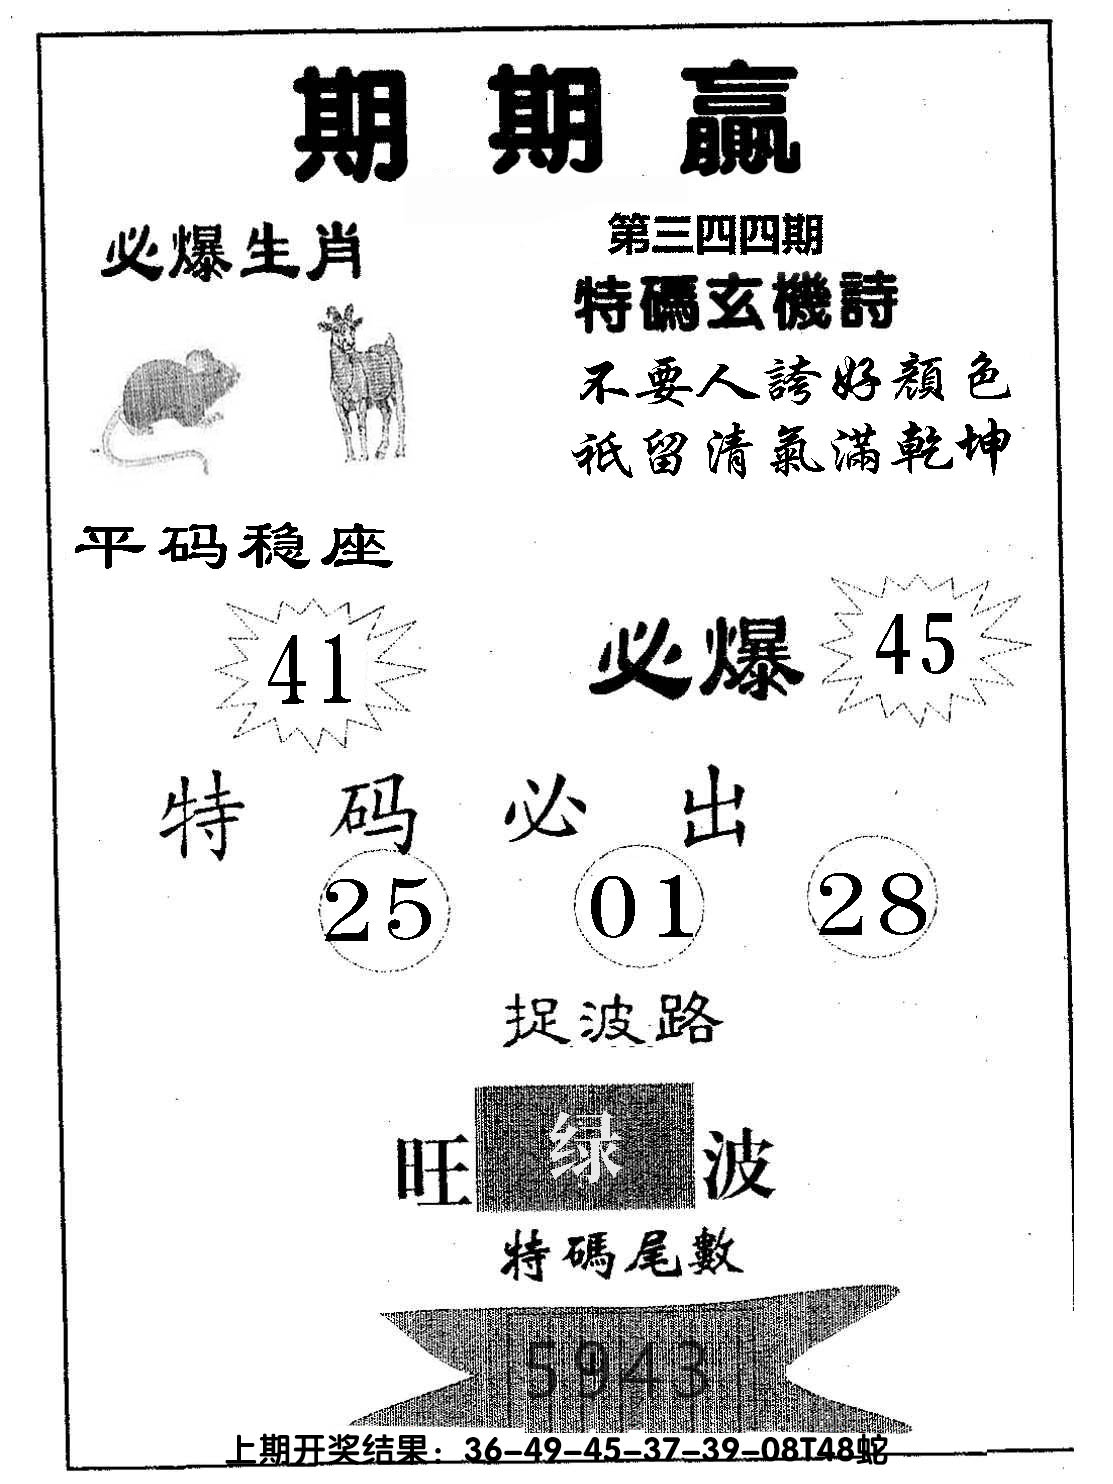 期期赢
必爆生肖
第三四四期
特碼玄機詩
不要人誇好顏色
祇留清氣滿乾坤
平码稳座
41
必爆 45
特码必出
25 01 28
捉波路
旺 绿 波
特碼尾數
5943
上期开奖结果：36-49-45-37-39-08T48蛇